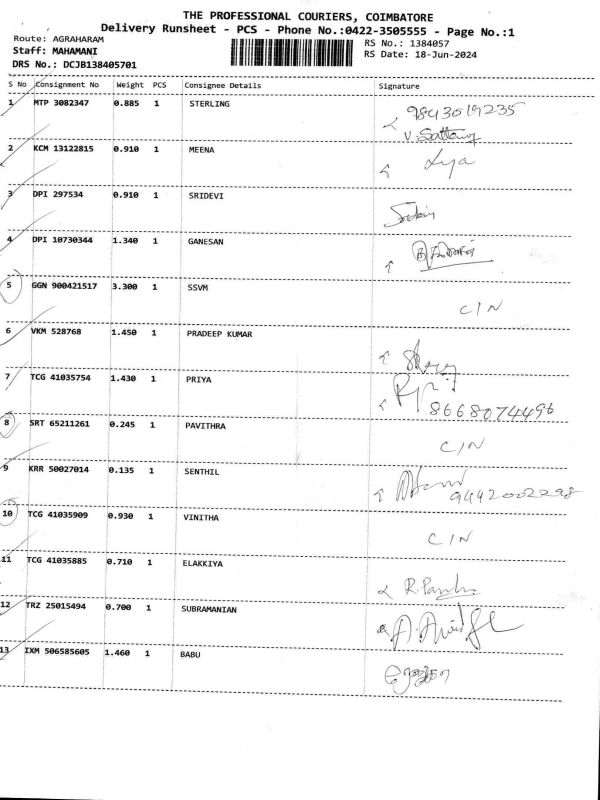 THE PROFESSIONAL COURIERS, COIMBATORE
Delivery Runsheet - PCS - Phone No.:0422-3505555 - Page No.:1
Route: AGRAHARAM
Staff: MAHAMANI
DRS No.: DCJB138405701
RS No.: 1384057
RS Date: 18-Jun-2024
S No Consignment No Weight PCS Consignee Details Signature
1 MTP 3082347 0.885 1 STERLING 9843019235
2 KCM 13122815 0.910 1 MEENA
3 DPI 297534 0.910 1 SRIDEVI
4 DPI 10730344 1.340 1 GANESAN
5 GGN 900421517 3.300 1 SSVM C/N
6 VKM 528768 1.450 1 PRADEEP KUMAR
7 TCG 41035754 1.430 1 PRIYA 8668074496
8 SRT 65211261 0.245 1 PAVITHRA C/N
9 KRR 50027014 0.135 1 SENTHIL 9442002298
10 TCG 41035909 0.930 1 VINITHA C/N
11 TCG 41035885 0.710 1 ELAKKIYA
12 TRZ 25015494 0.700 1 SUBRAMANIAN
13 IXM 506585605 1.460 1 BABU